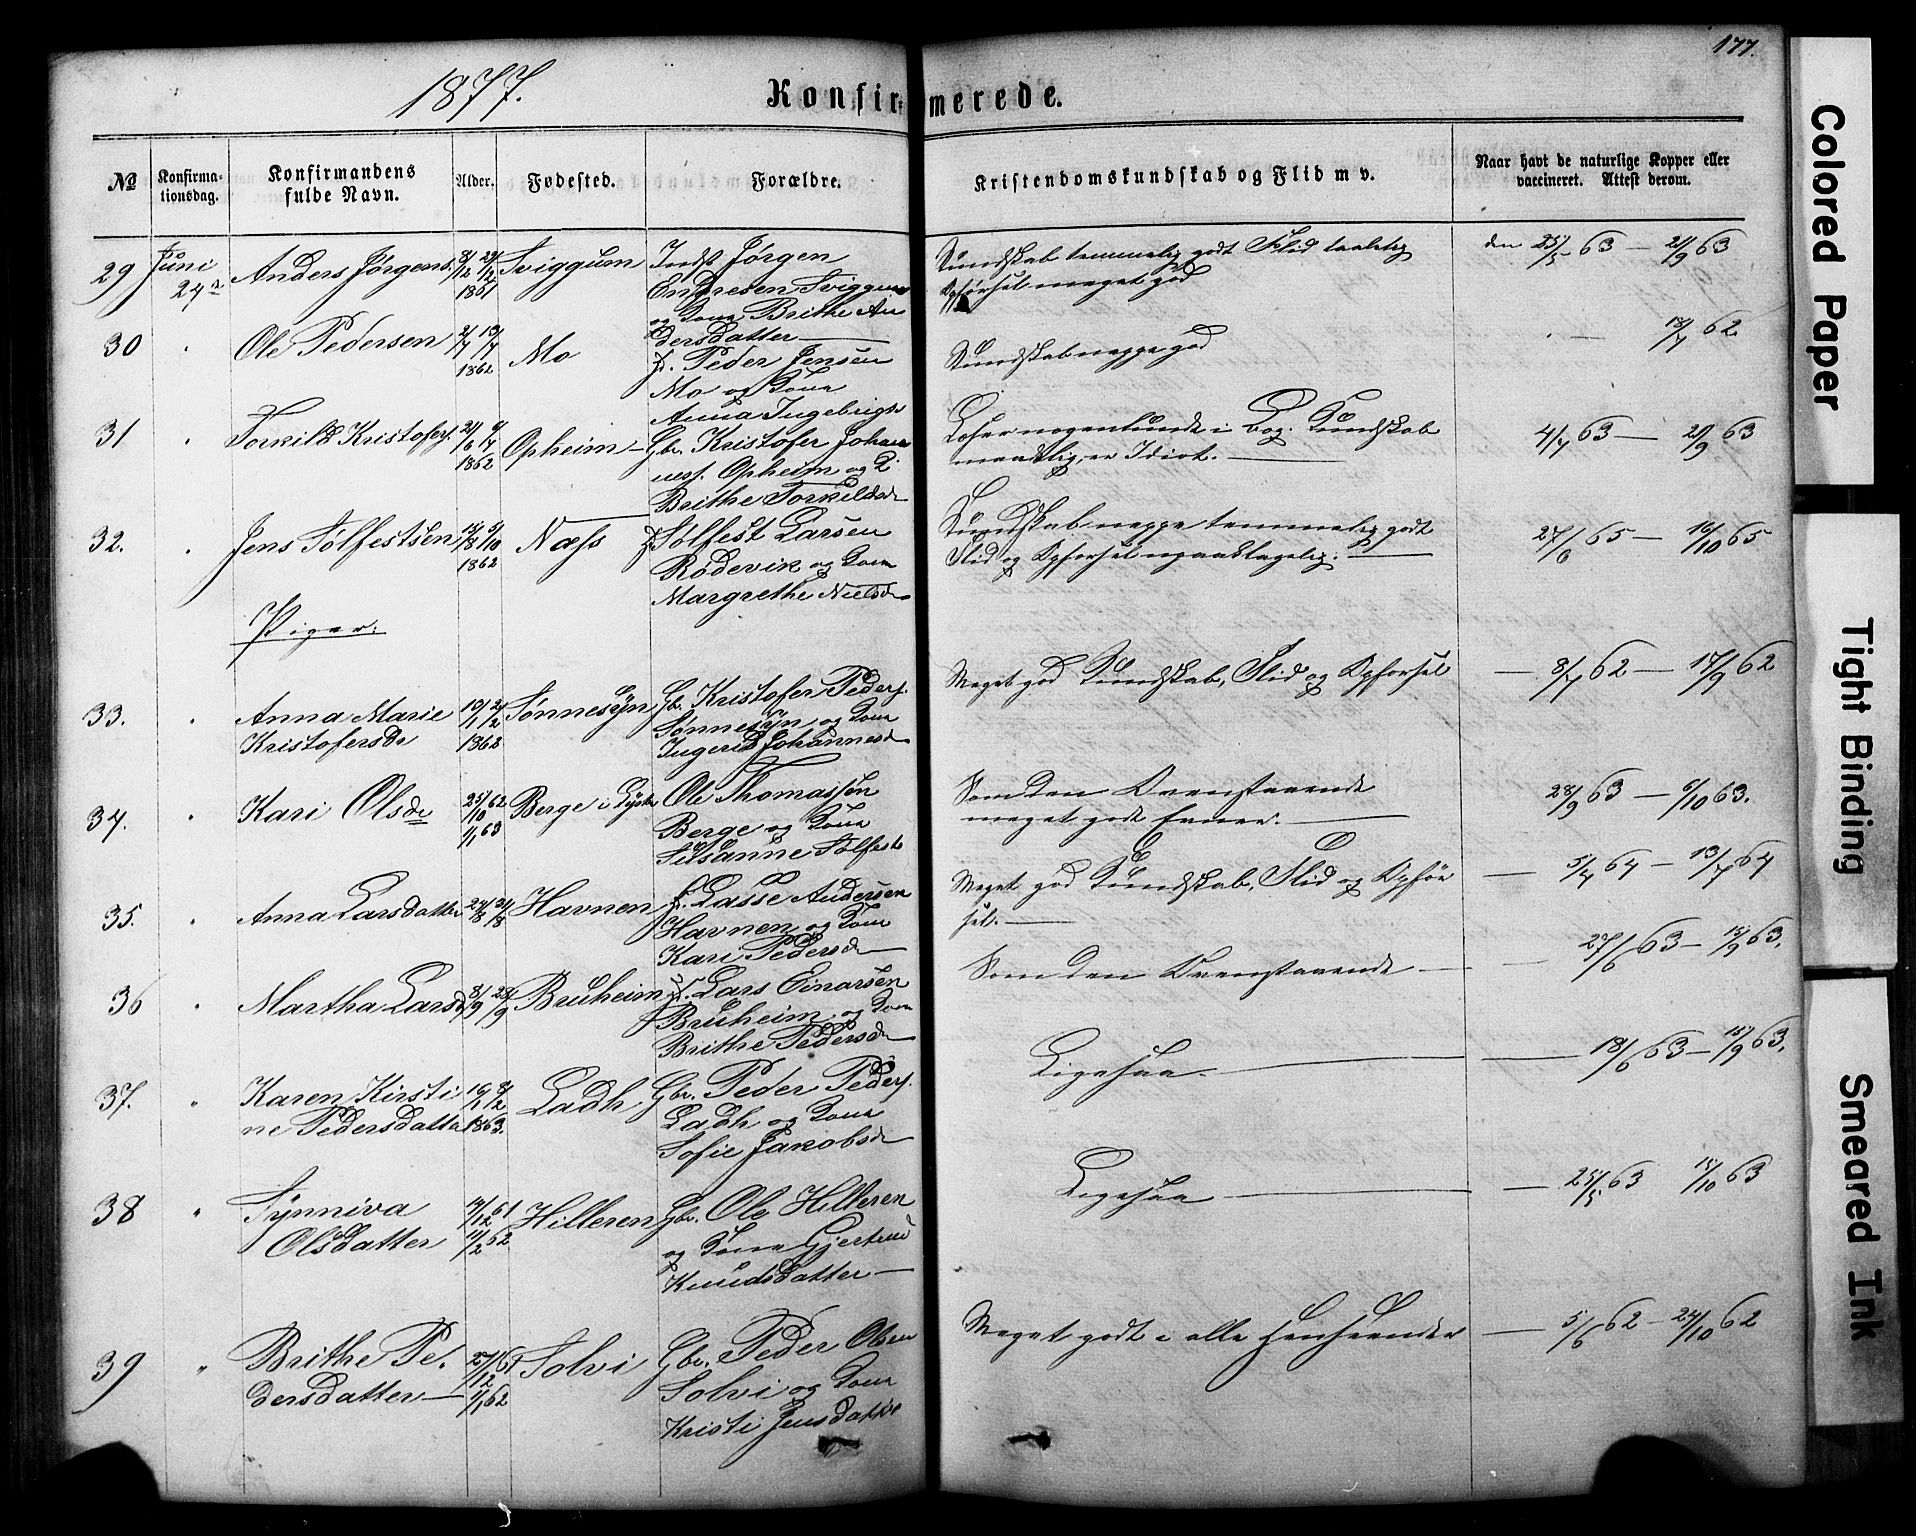 177.
1877.
Konfir- merede.
No
Konfirma-
tionsdag.
Konfirmandens
fulde Navn.
Alder.
Fødested.
Forældre.
Kristendomskundskab og Flid m v.
Naar havt de naturlige Kopper eller
vaccineret. Attest derom.
29 Juni 24de Anders Jørgens. 1861 Sviggum Indst Jørgen
Endresen Sviggum
og Kona Brithe An
dersdatter
Kundskab temmelig godt Flid taalelig
Opførsel meget god
den 25/5 63 — 21/9 63
30 " Ole Pedersen 1862 Mo F. Peder Jensen
Mo og Kona
Anna Ingebrigts
Kundskab neppe god
18/7 62
31 Torkild Kristofers. 1862 Opheim Gbr. Kristofer Johan
nes. Opheim og K.
Brithe Torkildsd
Læser nogenlunde i Bog. Kundskab
maadelig, er Idiot.
4/7 63 — 21/9 63
32. " Jens Sølfestsen 15/8 5/10 1862 Næss F. Sølfest Larsen
Rødevik og Kona
Margrethe Nielsd
Kundskab neppe temmelig godt
Flid og Opførsel upaaklagelig.
27/6 65 — 16/10 65
Piger:
33. " Anna Marie
Kristofersdr 10/1 2/2 1862 Sønnesyn Gbr. Kristofer Peders.
Sønnesyn og Kona
Ingerid Johannesd
Meget god Kundskab, Flid og Opførsel
— 8/7 62 — 17/9 62
34. " Kari Olsdr 25/10 62 1/1 63 Berge i Lyster Ole Thomassen
Berge og Kona
Susanne Sølfests
Som den Ovenstaaende
meget gode Evner.
28/9 63 — 6/10 63.
35. " Anna Larsdatter 27/8 31/8 Havnen F. Lasse Andersen
Havnen og Kona
Kari Pedersd
Meget god Kundskab, Flid og Opfør
sel.
— 5/7 64 — 13/7 64
36 " Martha Larsd 8/9 23/9 Bruheim F. Lars Einarsen
Bruheim og Kona
Brithe Pedersd
Som den Ovenstaaende
— 27/6 63 — 15/9 63.
37. " Karen Kirsti
ne Pedersdatter 16/1 8/2 1863. Ladh Gbr. Peder Peders.
Ladh og Kona
Sofie Jakobsd
Ligesaa
18/6 63 — 15/9 63.
38 " Synniva
Olsdatter 12 61 2 62 Hilleren Gbr. Ole Hilleren
og Kona Gjertrud
Knudsdatter
Ligesaa
— 25/5 63 15/10 63
39 " Brithe Pe.
dersdatter 27/12 61 1/1 62 Solvi Gbr. Peder Olsen
Solvi og Kona
Kristi Jensdatter
Meget godt i alle Henseender
— 5/6 62 — 24/10 62
Colored Paper
Tight Binding
Smeared Ink